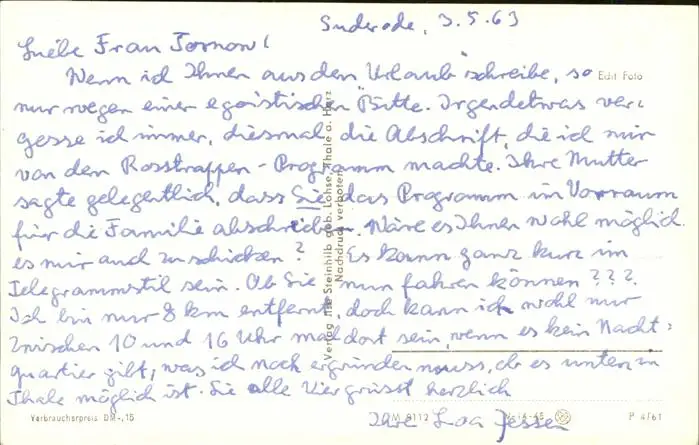 Suderode, 3.5.63
Liebe Frau Tornow!
Wenn ich Ihnen aus dem Urlaub schreibe, so
Echt Foto
nur wegen einer egoistischen Bitte. Irgendetwas ver-
gesse ich immer, diesmal die Abschrift, die ich mir
von dem Rosstrappen-Programm machte. Ihre Mutter
sagte gelegentlich, dass Sie das Programm im Vorraum
für die Familie abschreiben. Wäre es Ihnen wohl möglich
es mir auch zu schicken? Es kann ganz kurz im
Telegrammstil sein. Ob Sie nun fahren können???
Ich bin nur 8 km entfernt, doch kann ich wohl nur
zwischen 10 und 16 Uhr mal dort sein, wenn es kein Nacht-
quartier gibt, was ich noch ergründen muss, ob es unten in
Thale möglich ist. Sie alle Vier grüsst herzlich
Ihre Lea Jessen
Verlag Ilse Steinhilb geb. Lohse, Thale a. Harz
Nachdruck verboten
Verbraucherpreis DM -,15
M 9112
P 4/61